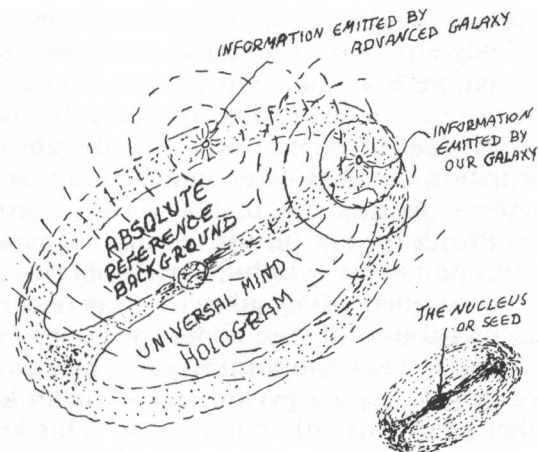 INFORMATION EMITTED BY
ADVANCED GALAXY
INFORMATION
EMITTED BY
OUR GALAXY
ABSOLUTE
REFERENCE
BACKGROUND
UNIVERSAL MIND
HOLOGRAM
THE NUCLEUS
OR SEED